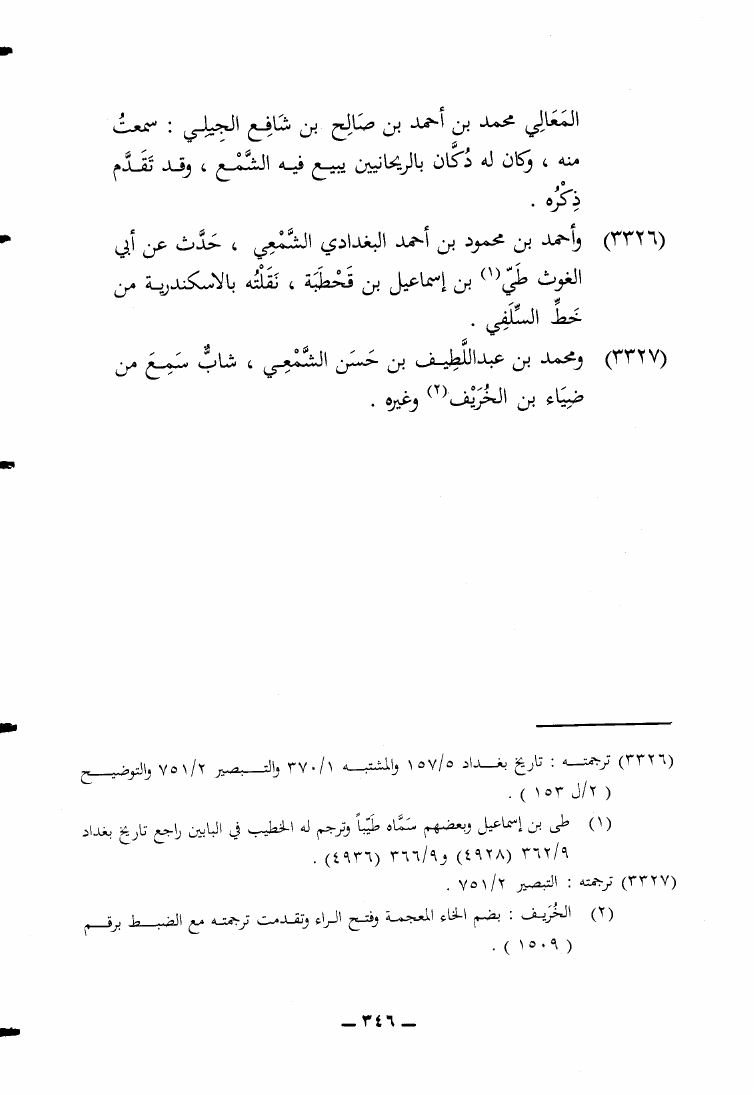 المَعَالِي محمد بن أحمد بن صَالِح بن شَافِع الجِيلِي : سمعتُ
منه ، وكان له دُكَّان بالريحانيين يبيع فيه الشَّمْع ، وقد تَقَدَّم
ذِكْرُه .
(٣٣٢٦) وأحمد بن محمود بن أحمد البغدادي الشَّمْعِي ، حَدَّث عن أبي
الغوث طَيّ(١) بن إسماعيل بن قَحْطَبَة ، نَقَلْتُه بالاسكندرية من
خَطِّ السِّلَفِي .
(٣٣٢٧) ومحمد بن عبداللَّطِيف بن حَسَن الشَّمْعِي ، شابٌّ سَمِعَ من
ضِيَاء بن الخُرَيْف(٢) وغيره .
(٣٣٢٦) ترجمته : تاريخ بغداد ١٥٧/٥ والمشتبه ٣٧٠/١ والتبصير ٧٥١/٢ والتوضيح
( ٢/ل ١٥٣ ) .
(١) طى بن إسماعيل وبعضهم سَمَّاه طَيِّباً وترجم له الخطيب في البابين راجع تاريخ بغداد
٣٦٢/٩ (٤٩٢٨) و٣٦٦/٩ (٤٩٣٦) .
(٣٣٢٧) ترجمته : التبصير ٧٥١/٢ .
(٢) الخُرَيف : بضم الخاء المعجمة وفتح الراء وتقدمت ترجمته مع الضبط برقم
( ١٥٠٩ ) .
ــ ٣٤٦ ــ